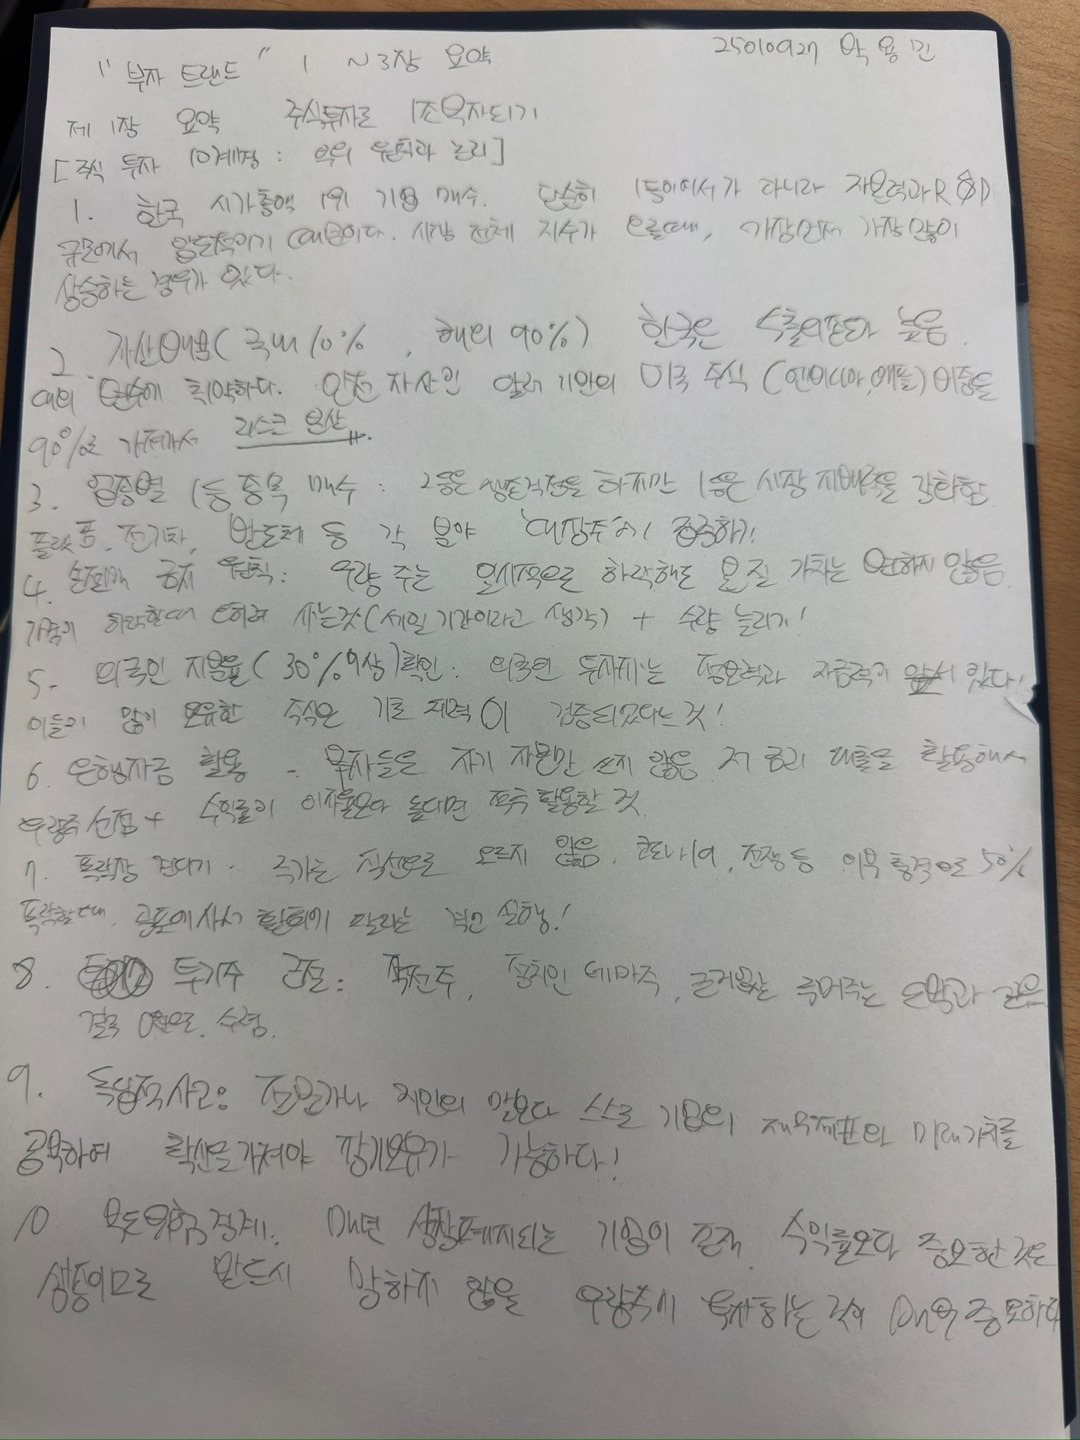 "부자 트랜드" 1 ~3장 요약
25010927 박용민
제 1장 요약 주식투자로 1조부자되기
[주식 투자 10계명 : 부의 원칙과 논리]
1. 한국 시가총액 1위 기업 매수. 단순히 1등이어서가 아니라 자본력과 R&D
규모에서 압도적이기 때문이다. 시장 전체 지수가 오를때, 가장먼저 가장많이
상승하는 경우가 있다.
2. 자산배분(국내 10%, 해외 90%) 한국은 수출의존도가 높음.
대외 변수에 취약하다. 안전 자산인 달러 기반의 미국 주식 (엔비디아, 애플) 비중을
90%로 가져가서 리스크 분산.
3. 업종별 1등 종목 매수 : 2등은 생존걱정을 하지만 1등은 시장 지배력을 강화함
플랫폼, 전기차, 반도체 등 각 분야 '대장주'에 집중하기
4. 손절매 금지 원칙: 우량주는 일시적으로 하락해도 본질 가치는 변하지 않음.
가격이 하락할때 오히려 사는것(세일기간이라고 생각) + 수량 늘리기!
5- 외국인 지분율(30%이상)확인: 외국인 투자자는 정보력과 자금력이 앞서 있다!
이들이 많이 보유한 주식은 기초 체력이 검증되었다는 것!
6. 은행자금 활용 - 부자들은 자기 자본만 쓰지 않음 저 금리 대출을 활용해서
우량주선점 + 수익률이 이자율보다 높다면 적극 활용할 것.
7. 폭락장 견디기. 주가는 직선으로 오르지 않음. 코로나19, 전쟁 등 외부 충격으로 50%
폭락할때. 공포에사서 환희에 팔라는 격언 실행!
8. 투기주 근절: 작전주, 정치인 테마주, 근거없는 루머주는 도박과 같음
결국 0원으로 수렴.
9. 독립적사고: 전문가나 지인의 말보다 스스로 기업의 재무제표와 미래가치를
공부하여 확신을가져야 장기보유가 가능하다!
10 부도위험경계. 매년 상장폐지되는 기업이 존재 수익률보다 중요한 것은
생존이므로 반드시 망하지 않을 우량주에 투자하는 것이 매우 중요하다